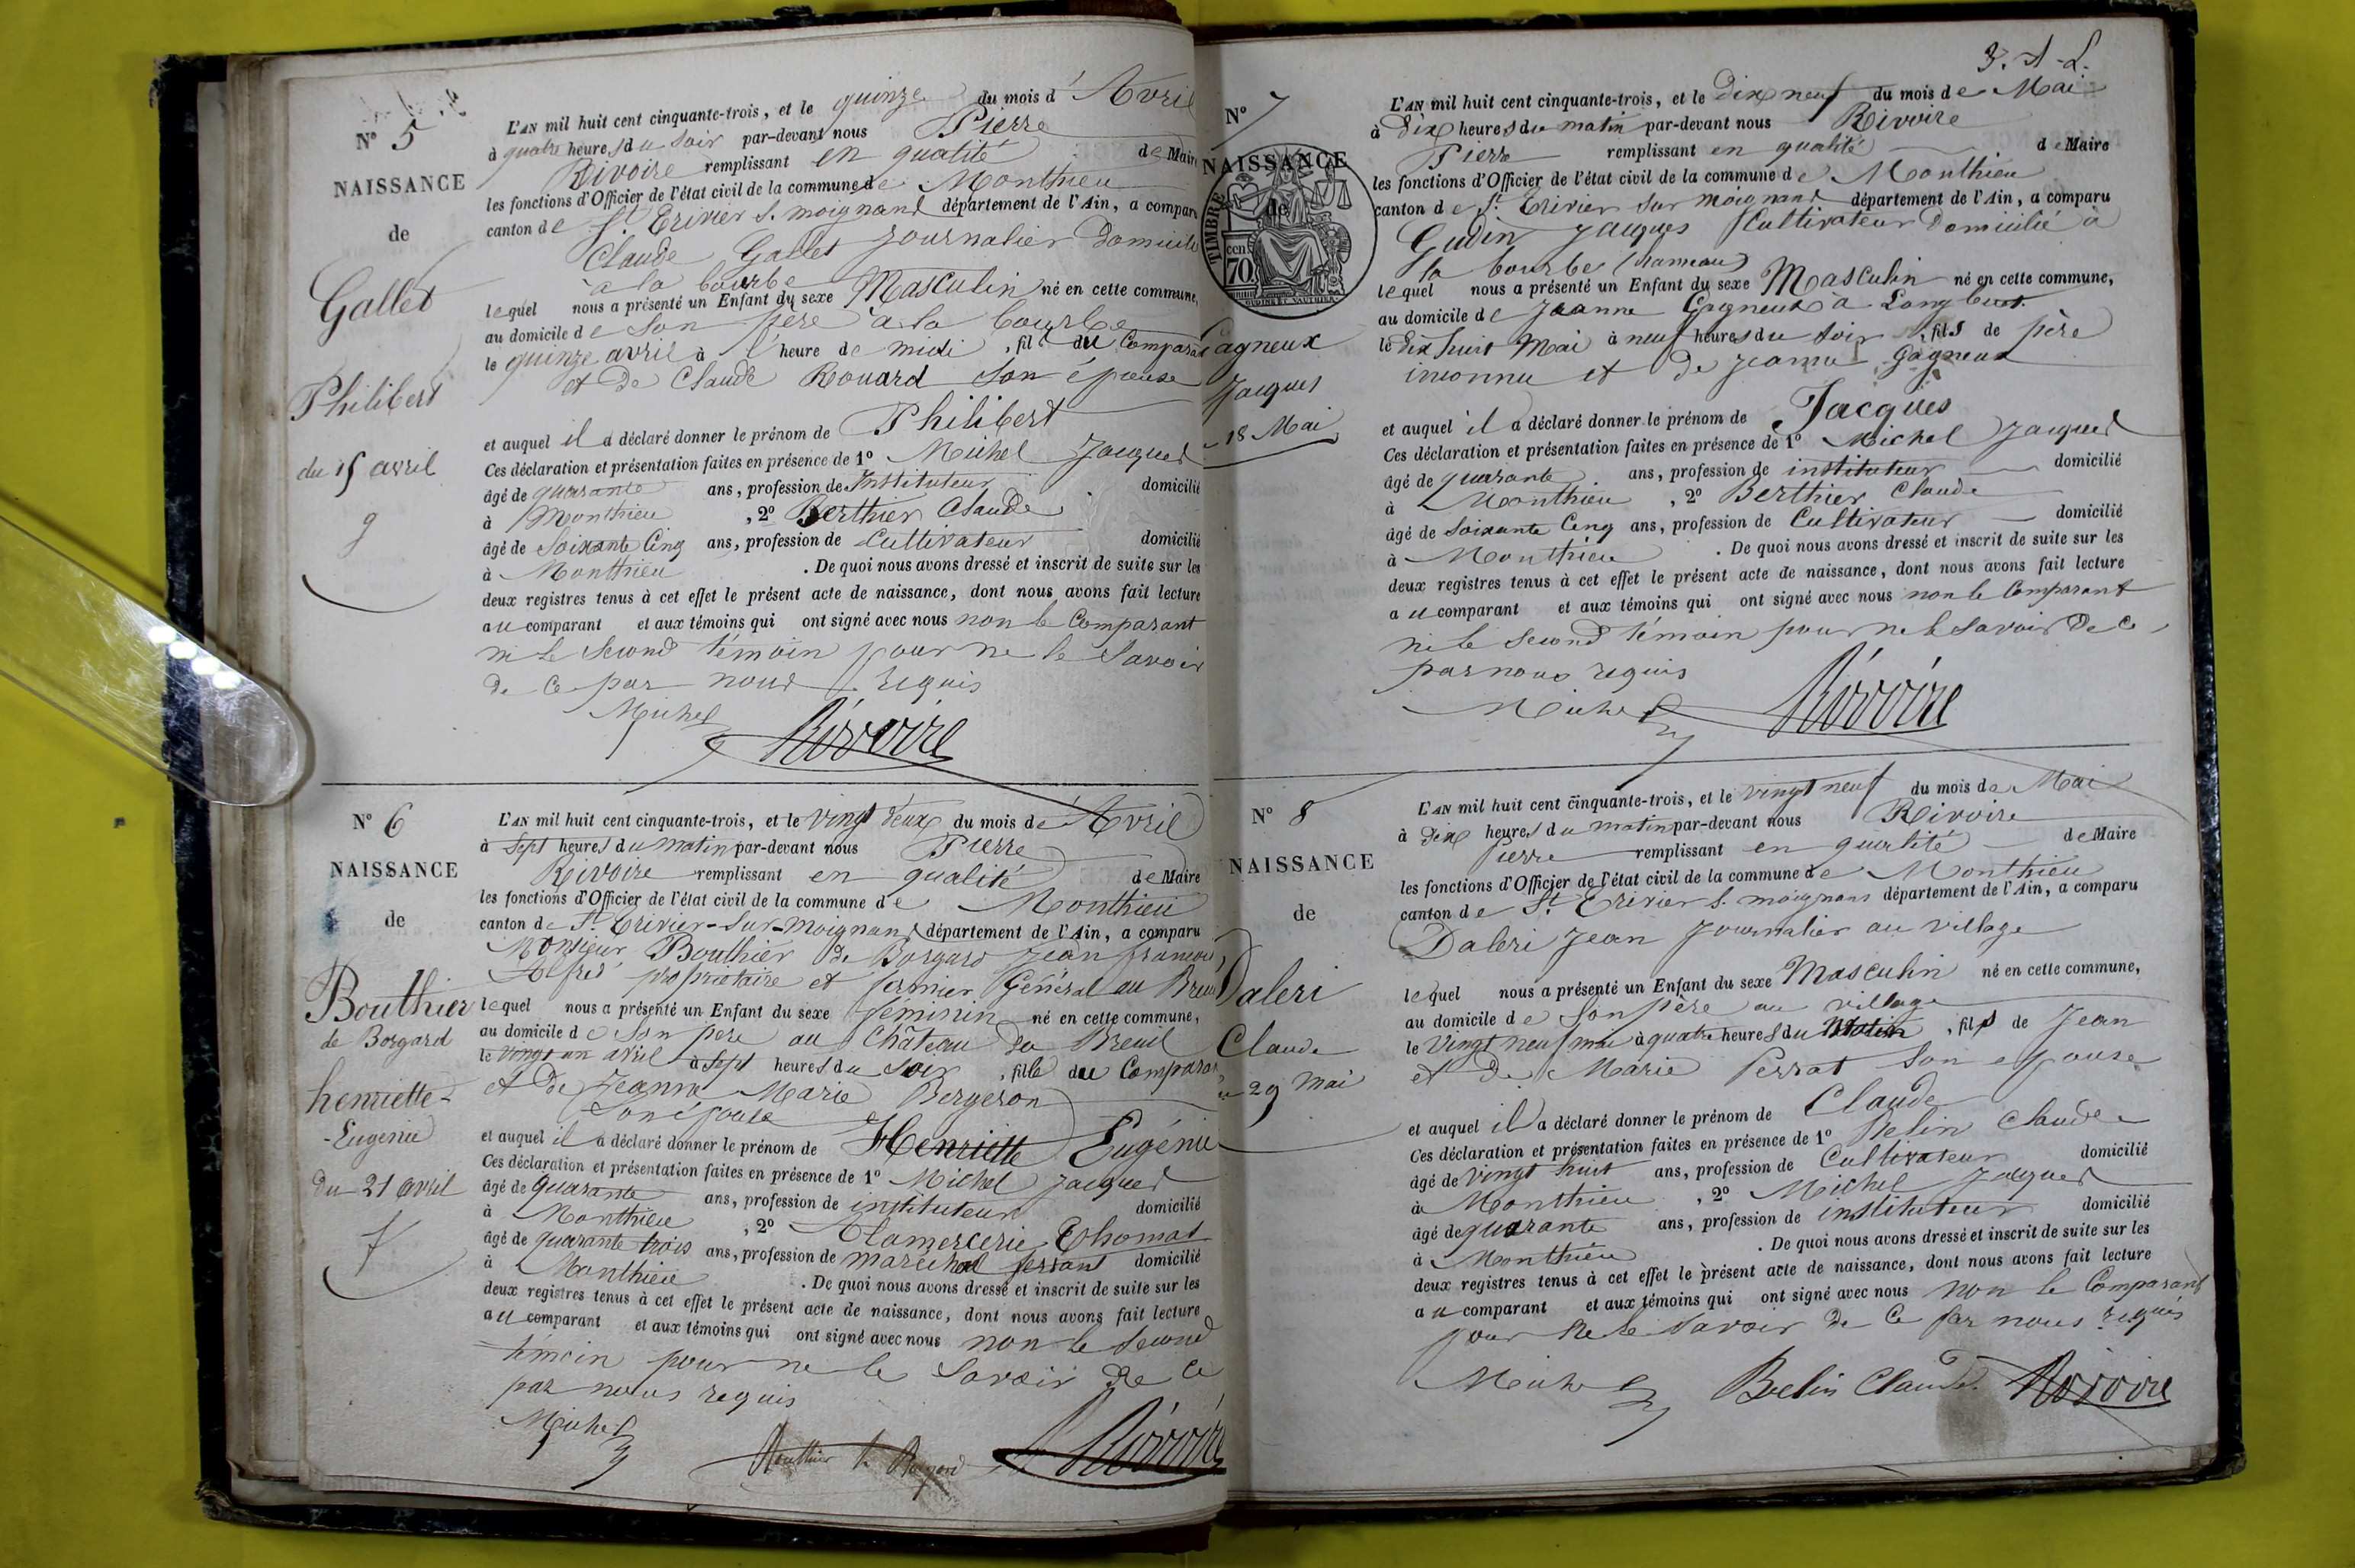 N° 5
NAISSANCE
de
Gallet
Philibert
du 15 avril
g
L'AN mil huit cent cinquante-trois, et le quinze du mois d'Avril
à quatre heures du soir par-devant nous Pierre
Rivoire remplissant en qualité de Maire
les fonctions d'Officier de l'état civil de la commune de Monthieu
canton de St Trivier s. moignand département de l'Ain, a comparu
Claude Gallet journalier domicilié
à la bourbe
lequel nous a présenté un Enfant du sexe Masculin né en cette commune,
au domicile de son père à la bourbe
le quinze avril à l'heure de midi, fils du Comparant
et de Claude Rouard son épouse
et auquel il a déclaré donner le prénom de Philibert
Ces déclaration et présentation faites en présence de 1° Michel Jacques
âgé de quarante ans, profession de Instituteur domicilié
à Monthieu, 2° Berthier Claude
âgé de soixante Cinq ans, profession de Cultivateur domicilié
à Monthieu. De quoi nous avons dressé et inscrit de suite sur les
deux registres tenus à cet effet le présent acte de naissance, dont nous avons fait lecture
au comparant et aux témoins qui ont signé avec nous non le Comparant
ni le second témoin pour ne le savoir
de ce par nous requis
Michel Rivoire
N° 6
NAISSANCE
de
Bouthier
de Borgard
henriette-
-Eugénie
du 21 avril
f
L'AN mil huit cent cinquante-trois, et le vingt deux du mois de Avril
à sept heures du matin par-devant nous Pierre
Rivoire remplissant en qualité de Maire
les fonctions d'Officier de l'état civil de la commune de Monthieu
canton de St Trivier-sur-moignand département de l'Ain, a comparu
Monsieur Bouthier de Borgard Jean françois
Alfred propriétaire et fermier Général au Breuil
lequel nous a présenté un Enfant du sexe féminin né en cette commune,
au domicile de son père au Château du Breuil
le vingt un avril à sept heures du soir, fille du Comparant
et de Jeanne Marie Bergeron
son épouse
et auquel il a déclaré donner le prénom de Henriette Eugénie
Ces déclaration et présentation faites en présence de 1° Michel Jacques
âgé de quarante ans, profession de instituteur domicilié
à Monthieu, 2° Clamercerie Thomas
âgé de quarante trois ans, profession de maréchal ferrant domicilié
à Monthieu. De quoi nous avons dressé et inscrit de suite sur les
deux registres tenus à cet effet le présent acte de naissance, dont nous avons fait lecture
au comparant et aux témoins qui ont signé avec nous non le second
témoin pour ne le savoir de ce
par nous requis
Michel Bouthier de Borgard Rivoire
3. A-L.
N° 7
NAISSANCE
de
TIMBRE
cen
70
Gagneux
Jacques
18 Mai
L'AN mil huit cent cinquante-trois, et le Dix neuf du mois de Mai
à Dix heures du matin par-devant nous Rivoire
Pierre remplissant en qualité de Maire
les fonctions d'Officier de l'état civil de la commune de Monthieu
canton de St Trivier sur moignand département de l'Ain, a comparu
Gudin Jacques Cultivateur domicilié à
la bourbe (hameau)
lequel nous a présenté un Enfant du sexe Masculin né en cette commune,
au domicile de Jeanne Gagneux à
le dix huit Mai à neuf heures du soir, fils de père
inconnu et de Jeanne Gagneux
et auquel il a déclaré donner le prénom de Jacques
Ces déclaration et présentation faites en présence de 1° Michel Jacques
âgé de quarante ans, profession de instituteur domicilié
à Monthieu, 2° Berthier Claude
âgé de soixante Cinq ans, profession de Cultivateur domicilié
à Monthieu. De quoi nous avons dressé et inscrit de suite sur les
deux registres tenus à cet effet le présent acte de naissance, dont nous avons fait lecture
au comparant et aux témoins qui ont signé avec nous non le Comparant
ni le second témoin pour ne le savoir de ce
par nous requis
Michel Rivoire
N° 8
NAISSANCE
de
Daleri
Claude
29 Mai
L'AN mil huit cent cinquante-trois, et le vingt neuf du mois de Mai
à dix heures du matin par-devant nous Rivoire
Pierre remplissant en qualité de Maire
les fonctions d'Officier de l'état civil de la commune de Monthieu
canton de St Trivier s. moignans département de l'Ain, a comparu
Daleri Jean Journalier au village
lequel nous a présenté un Enfant du sexe Masculin né en cette commune,
au domicile de son père au village
le vingt neuf mai à quatre heures du Matin, fils de Jean
et de Marie Perrat son épouse
et auquel il a déclaré donner le prénom de Claude
Ces déclaration et présentation faites en présence de 1° Belin Claude
âgé de vingt huit ans, profession de Cultivateur domicilié
à Monthieu, 2° Michel Jacques
âgé de quarante ans, profession de instituteur domicilié
à Monthieu. De quoi nous avons dressé et inscrit de suite sur les
deux registres tenus à cet effet le présent acte de naissance, dont nous avons fait lecture
au comparant et aux témoins qui ont signé avec nous non le Comparant
pour ne le savoir de ce par nous requis
Michel Belin Claude Rivoire